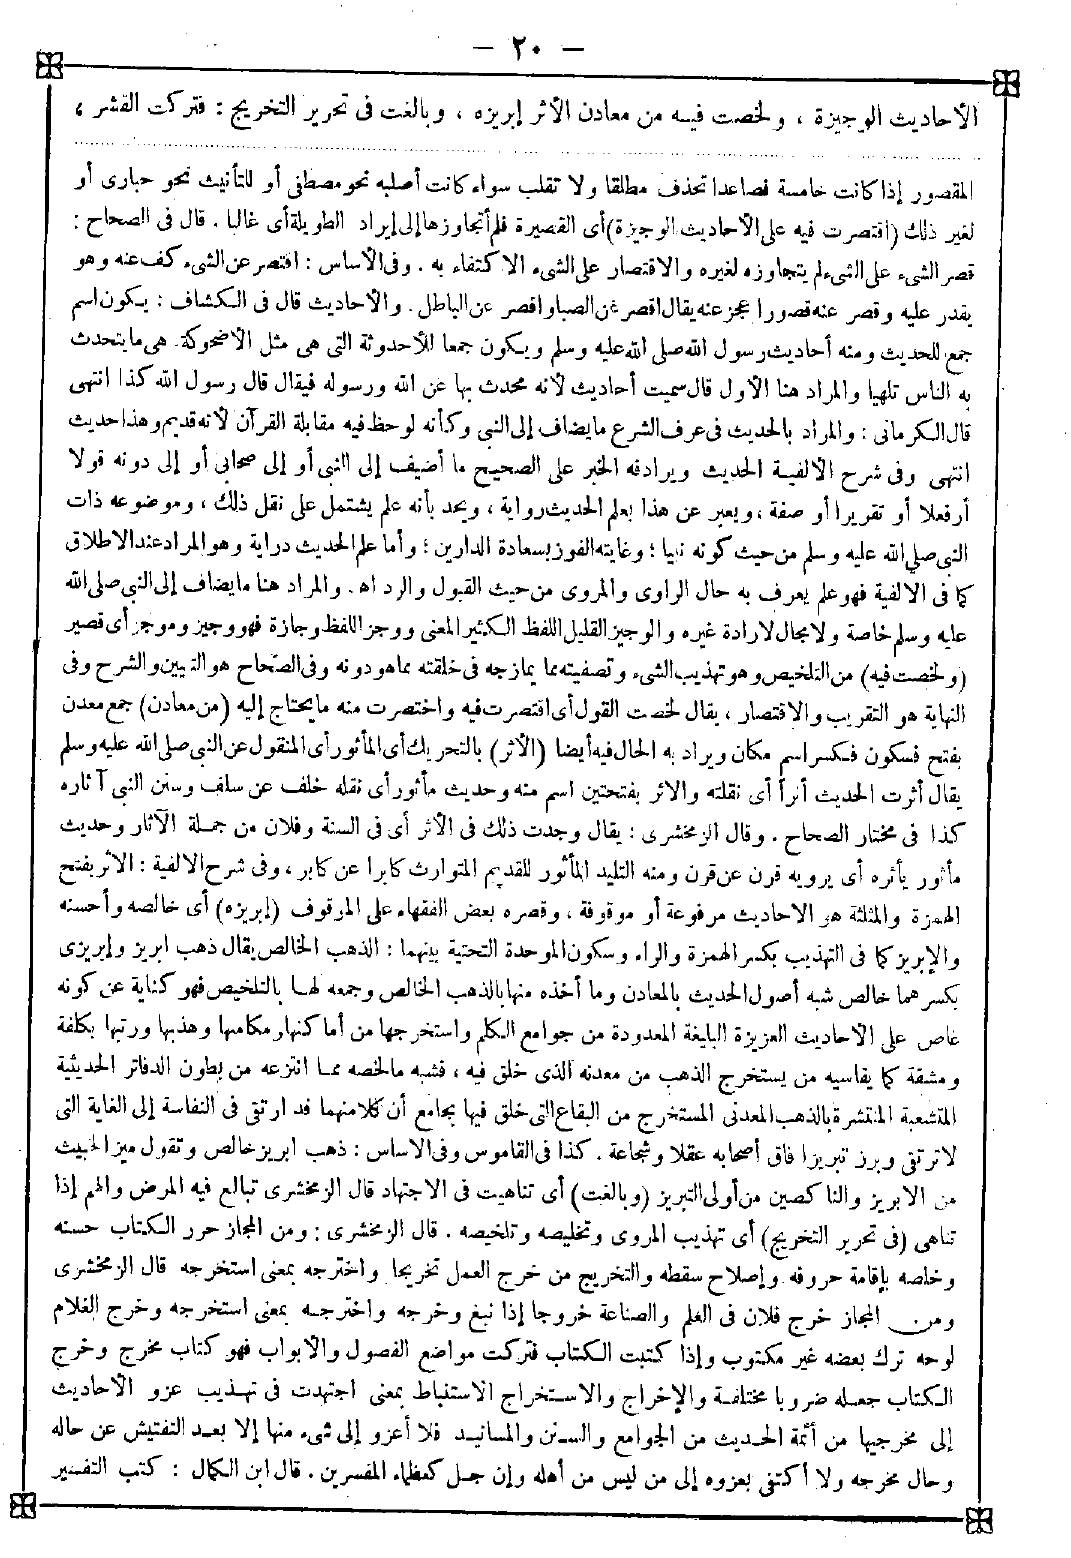 — ٢٠ —
الأحاديث الوجيزة ، ولخصت فيه من معادن الأثر إبريزه ، وبالغت فى تحرير التخريج : فتركت القشر ،
المقصور إذا كانت خامسة فصاعدا تحذف مطلقا ولا تقلب سواء كانت أصلية نحو مصطفى أو للتأنيث نحو حبارى أو
لغير ذلك (اقتصرت فيه على الأحاديث الوجيزة) أى القصيرة فلم أتجاوزها إلى إيراد الطويلة أى غالبا . قال فى الصحاح :
قصر الشىء على الشىء لم يتجاوزه لغيره والاقتصار على الشىء الاكتفاء به . وفى الأساس : اقتصر عن الشىء كف عنه وهو
يقدر عليه وقصر عنه قصورا عجز عنه يقال اقصر عن الصبا واقصر عن الباطل . والأحاديث قال فى الكشاف : يكون اسم
جمع للحديث ومنه أحاديث رسول الله صلى الله عليه وسلم ويكون جمعا للأحدوثة التى هى مثل الأضحوكة. هى ما يتحدث
به الناس تلهيا والمراد هنا الأول قال سميت أحاديث لأنه محدث بها عن الله ورسوله فيقال قال رسول الله كذا انتهى
قال الكرمانى : والمراد بالحديث فى عرف الشرع ما يضاف إلى النبى وكأنه لوحظ فيه مقابلة القرآن لأنه قديم وهذا حديث
انتهى وفى شرح الألفية الحديث ويرادفه الخبر على الصحيح ما أضيف إلى النبى أو إلى صحابى أو إلى دونه قولا
أو فعلا أو تقريرا أو صفة ، ويعبر عن هذا بعلم الحديث رواية ، ويحد بأنه علم يشتمل على نقل ذلك ، وموضوعه ذات
النبى صلى الله عليه وسلم من حيث كونه نبيا ؛ وغايته الفوز بسعادة الدارين ؛ وأما علم الحديث دراية وهو المراد عند الاطلاق
كما فى الالفية فهو علم يعرف به حال الراوى والمروى من حيث القبول والرد اه . والمراد هنا ما يضاف إلى النبى صلى الله
عليه وسلم خاصة ولا مجال لارادة غيره والوجيز القليل اللفظ الكثير المعنى ووجز اللفظ وجازة فهو وجيز وموجز أى قصير
(ولخصت فيه) من التلخيص وهو تهذيب الشىء وتصفيته مما يمازجه فى خلقته مما هو دونه وفى الصحاح هو التبيين والشرح وفى
النهاية هو التقريب والاقتصار ، يقال لخصت القول أى اقتصرت فيه واختصرت منه ما يحتاج إليه (من معادن) جمع معدن
بفتح فسكون فكسر اسم مكان ويراد به الحال فيه أيضا (الأثر) بالتحريك أى المأثور أى المنقول عن النبى صلى الله عليه وسلم
يقال أثرت الحديث أثرا أى نقلته والاثر بفتحتين اسم منه وحديث مأثور أى نقله خلف عن سلف وسنن النبى آثاره
كذا فى مختار الصحاح . وقال الزمخشرى : يقال وجدت ذلك فى الأثر أى فى السنة وفلان من جملة الآثار وحديث
مأثور يأثره أى يرويه قرن عن قرن ومنه التليد المأثور للقديم المتوارث كابرا عن كابر ، وفى شرح الالفية : الاثر بفتح
الهمزة والمثلثة هو الاحاديث مرفوعة أو موقوفة ، وقصره بعض الفقهاء على الموقوف (إبريزه) أى خالصه وأحسنه
والإبريز كما فى التهذيب بكسر الهمزة والراء وسكون الموحدة التحتية بينهما : الذهب الخالص يقال ذهب ابريز وإبريزى
بكسرهما خالص شبه أصول الحديث بالمعادن وما أخذه منها بالذهب الخالص وجمعه لها بالتلخيص فهو كناية عن كونه
غاص على الاحاديث العزيزة البليغة المعدودة من جوامع الكلم واستخرجها من أماكنها ومكامنها وهذبها ورتبها بكلفة
ومشقة كما يقاسيه من يستخرج الذهب من معدنه الذى خلق فيه ، فشبه ما لخصه مما انتزعه من بطون الدفاتر الحديثية
المتشعبة المنتشرة بالذهب المعدنى المستخرج من البقاع التى خلق فيها بجامع أن كلا منهما قد ارتقى فى النفاسة إلى الغاية التى
لا ترتقى وبرز تبريزا فاق أصحابه عقلا وشجاعة . كذا فى القاموس وفى الاساس : ذهب ابريز خالص وتقول ميز الخبيث
من الابريز والناكصين من أولى التبريز (وبالغت) أى تناهيت فى الاجتهاد قال الزمخشرى تبالغ فيه المرض والهم إذا
تناهى (فى تحرير التخريج) أى تهذيب المروى وتخليصه وتلخيصه . قال الزمخشرى : ومن المجاز حرر الكتاب حسنه
وخلصه بإقامة حروفه وإصلاح سقطه والتخريج من خرج العمل تخريجا واخترجه بمعنى استخرجه قال الزمخشرى
ومن المجاز خرج فلان فى العلم والصناعة خروجا إذا نبغ وخرجه واخترجه بمعنى استخرجه وخرج الغلام
لوحه ترك بعضه غير مكتوب وإذا كتبت الكتاب فتركت مواضع الفصول والأبواب فهو كتاب مخرج وخرج
الكتاب جعله ضروبا مختلفة والإخراج والاستخراج الاستنباط بمعنى اجتهدت فى تهذيب عزو الأحاديث
إلى مخرجيها من أئمة الحديث من الجوامع والسنن والمسانيد فلا أعزو إلى شىء منها إلا بعد التفتيش عن حاله
وحال مخرجه ولا أكتفى بعزوه إلى من ليس من أهله وإن جل كعظماء المفسرين . قال ابن الكمال : كتب التفسير